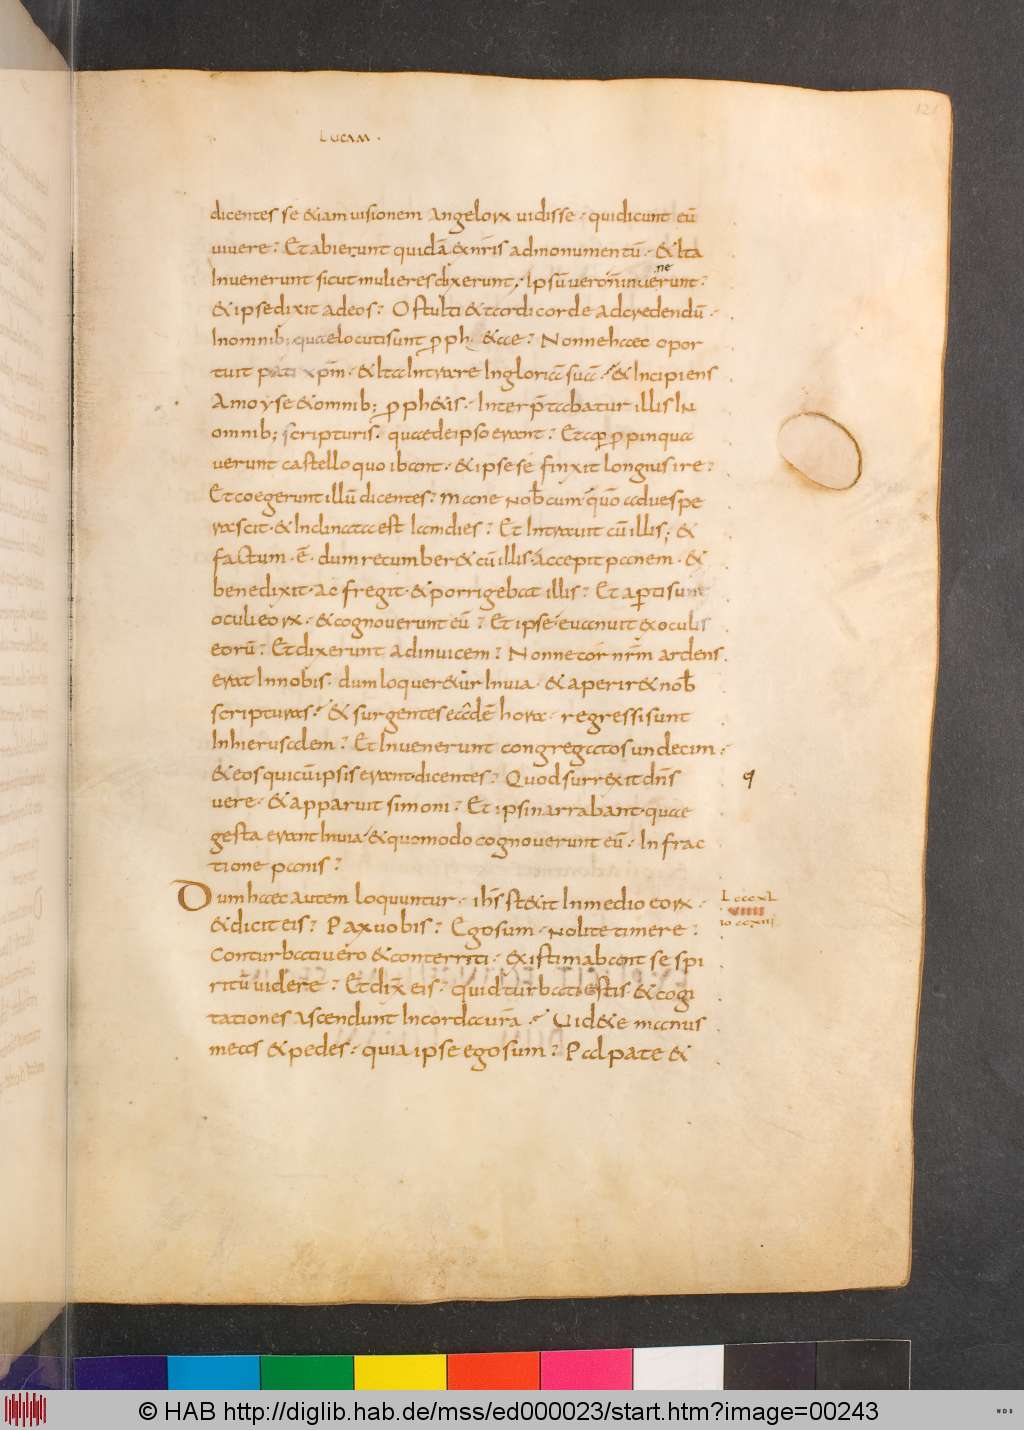 121
LUCAM ·
dicentes se &iam uisionem Angeloꝝ uidisse · quidicunt eū
uiuere : Et abierunt quidā exnr̄is admonumentū · & Ita
Inuenerunt sicut mulieres dixerunt · Ipsū uero n̄ inuenerunt :
& ipse dixit adeos : O stulti & tardi corde Adcredendū ·
Inomnib; quae locuti sunt ꝓph&ae : Nonne haec opor
tuit pati xp̄m · & Ita Intrare Ingloriā suā : & Incipiens
A moyse & omnib; ꝓph&is · Interp̄tabatur illis IN
omnib; scripturis · quae deipso erant : Et aꝓpinqua
uerunt castello quo ibant · & ipse se finxit longius ire :
Et coegerunt illū dicentes : Mane nob̄cum quō aduespe
rascit · & Inclinata est Iam dies : Et Intrauit cū illis ; &
factum · ē · dum recumber& cū illis · Accepit panem · &
benedixit · Ac fregit · & porrigebat illis : Et aꝑti sunt
oculi eoꝝ · & cognouerunt eū : Et ipse euanuit exoculis
eorū : Et dixerunt Adinuicem : Nonne cor nr̄m ardens
erat Innobis · dum loquer&ur Inuia · & aperir& nob̄
scripturas : & surgentes eadē hora · regressi sunt
Inhierusalem : Et Inuenerunt congregatos undecim ·
& eos quicū ipsis erant · dicentes : Quod surrexit dn̄s
uere · & apparuit simoni : Et ipsi narrabant · quae
gesta erant Inuia · & quomodo cognouerunt eū · In frac
tione panis :
Dum haec autem loquuntur · ih̄s st&it Inmedio eoꝝ ·
& dicit eis : Pax uobis : Ego sum · Nolite timere :
Conturbati uero & conterriti · existimabant se spi
ritū uidere : Et dix̄ eis : quid turbati estis · & cogi
tationes Ascendunt Incorda ur̄a · Uid&e manus
meas & pedes · quia ipse ego sum : Palpate &
LcccxL
VIIII
© HAB http://diglib.hab.de/mss/ed000023/start.htm?image=00243